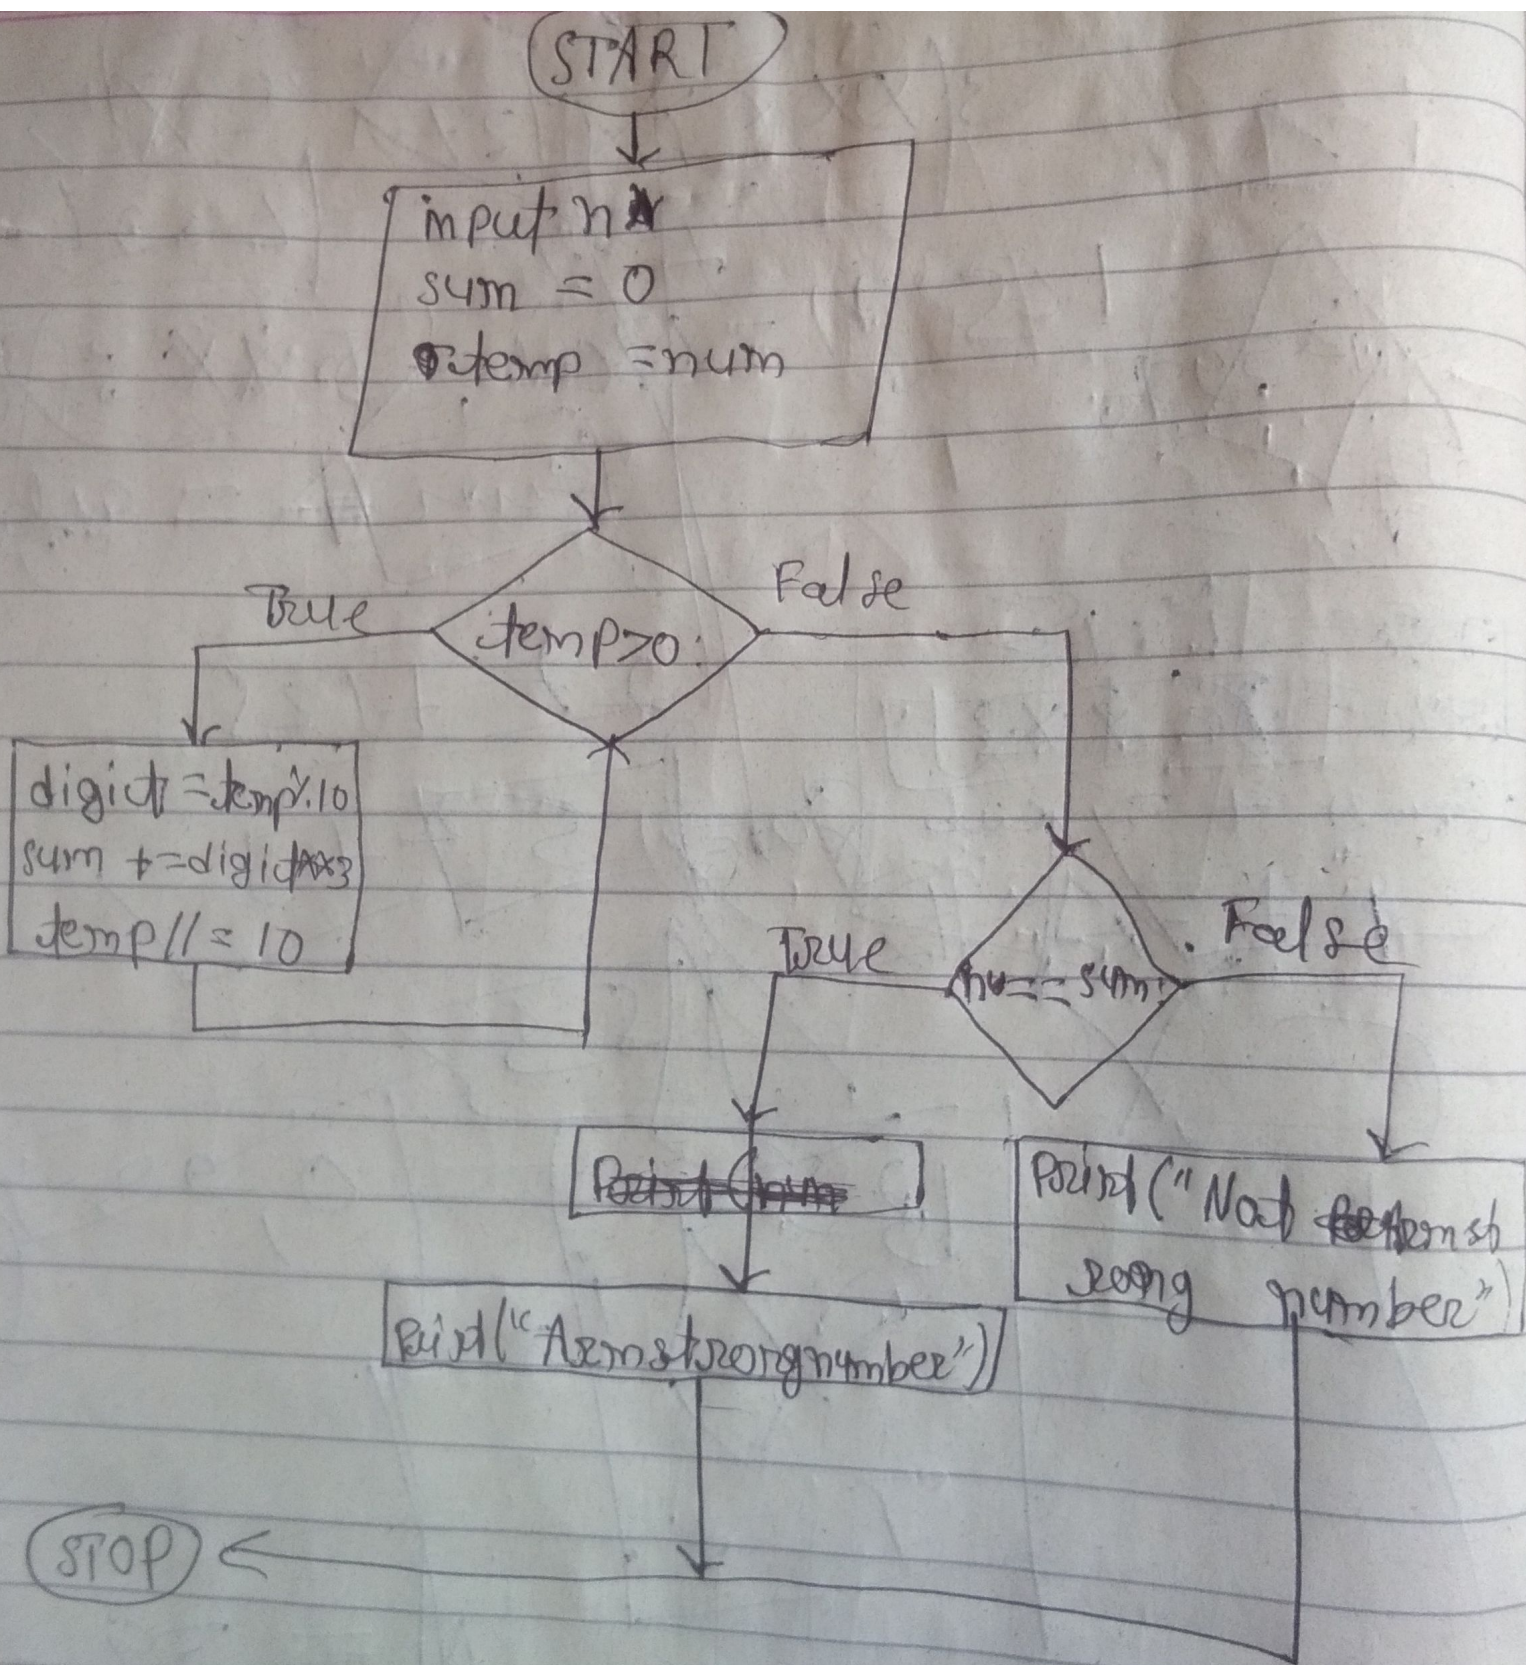 START
input n
sum = 0
temp = num
temp>0:
True
False
digict = temp%10
sum += digict**3
temp//=10
True
False
== sum:
Print("Not Armst
rong number")
Print("Armstrong number")
STOP